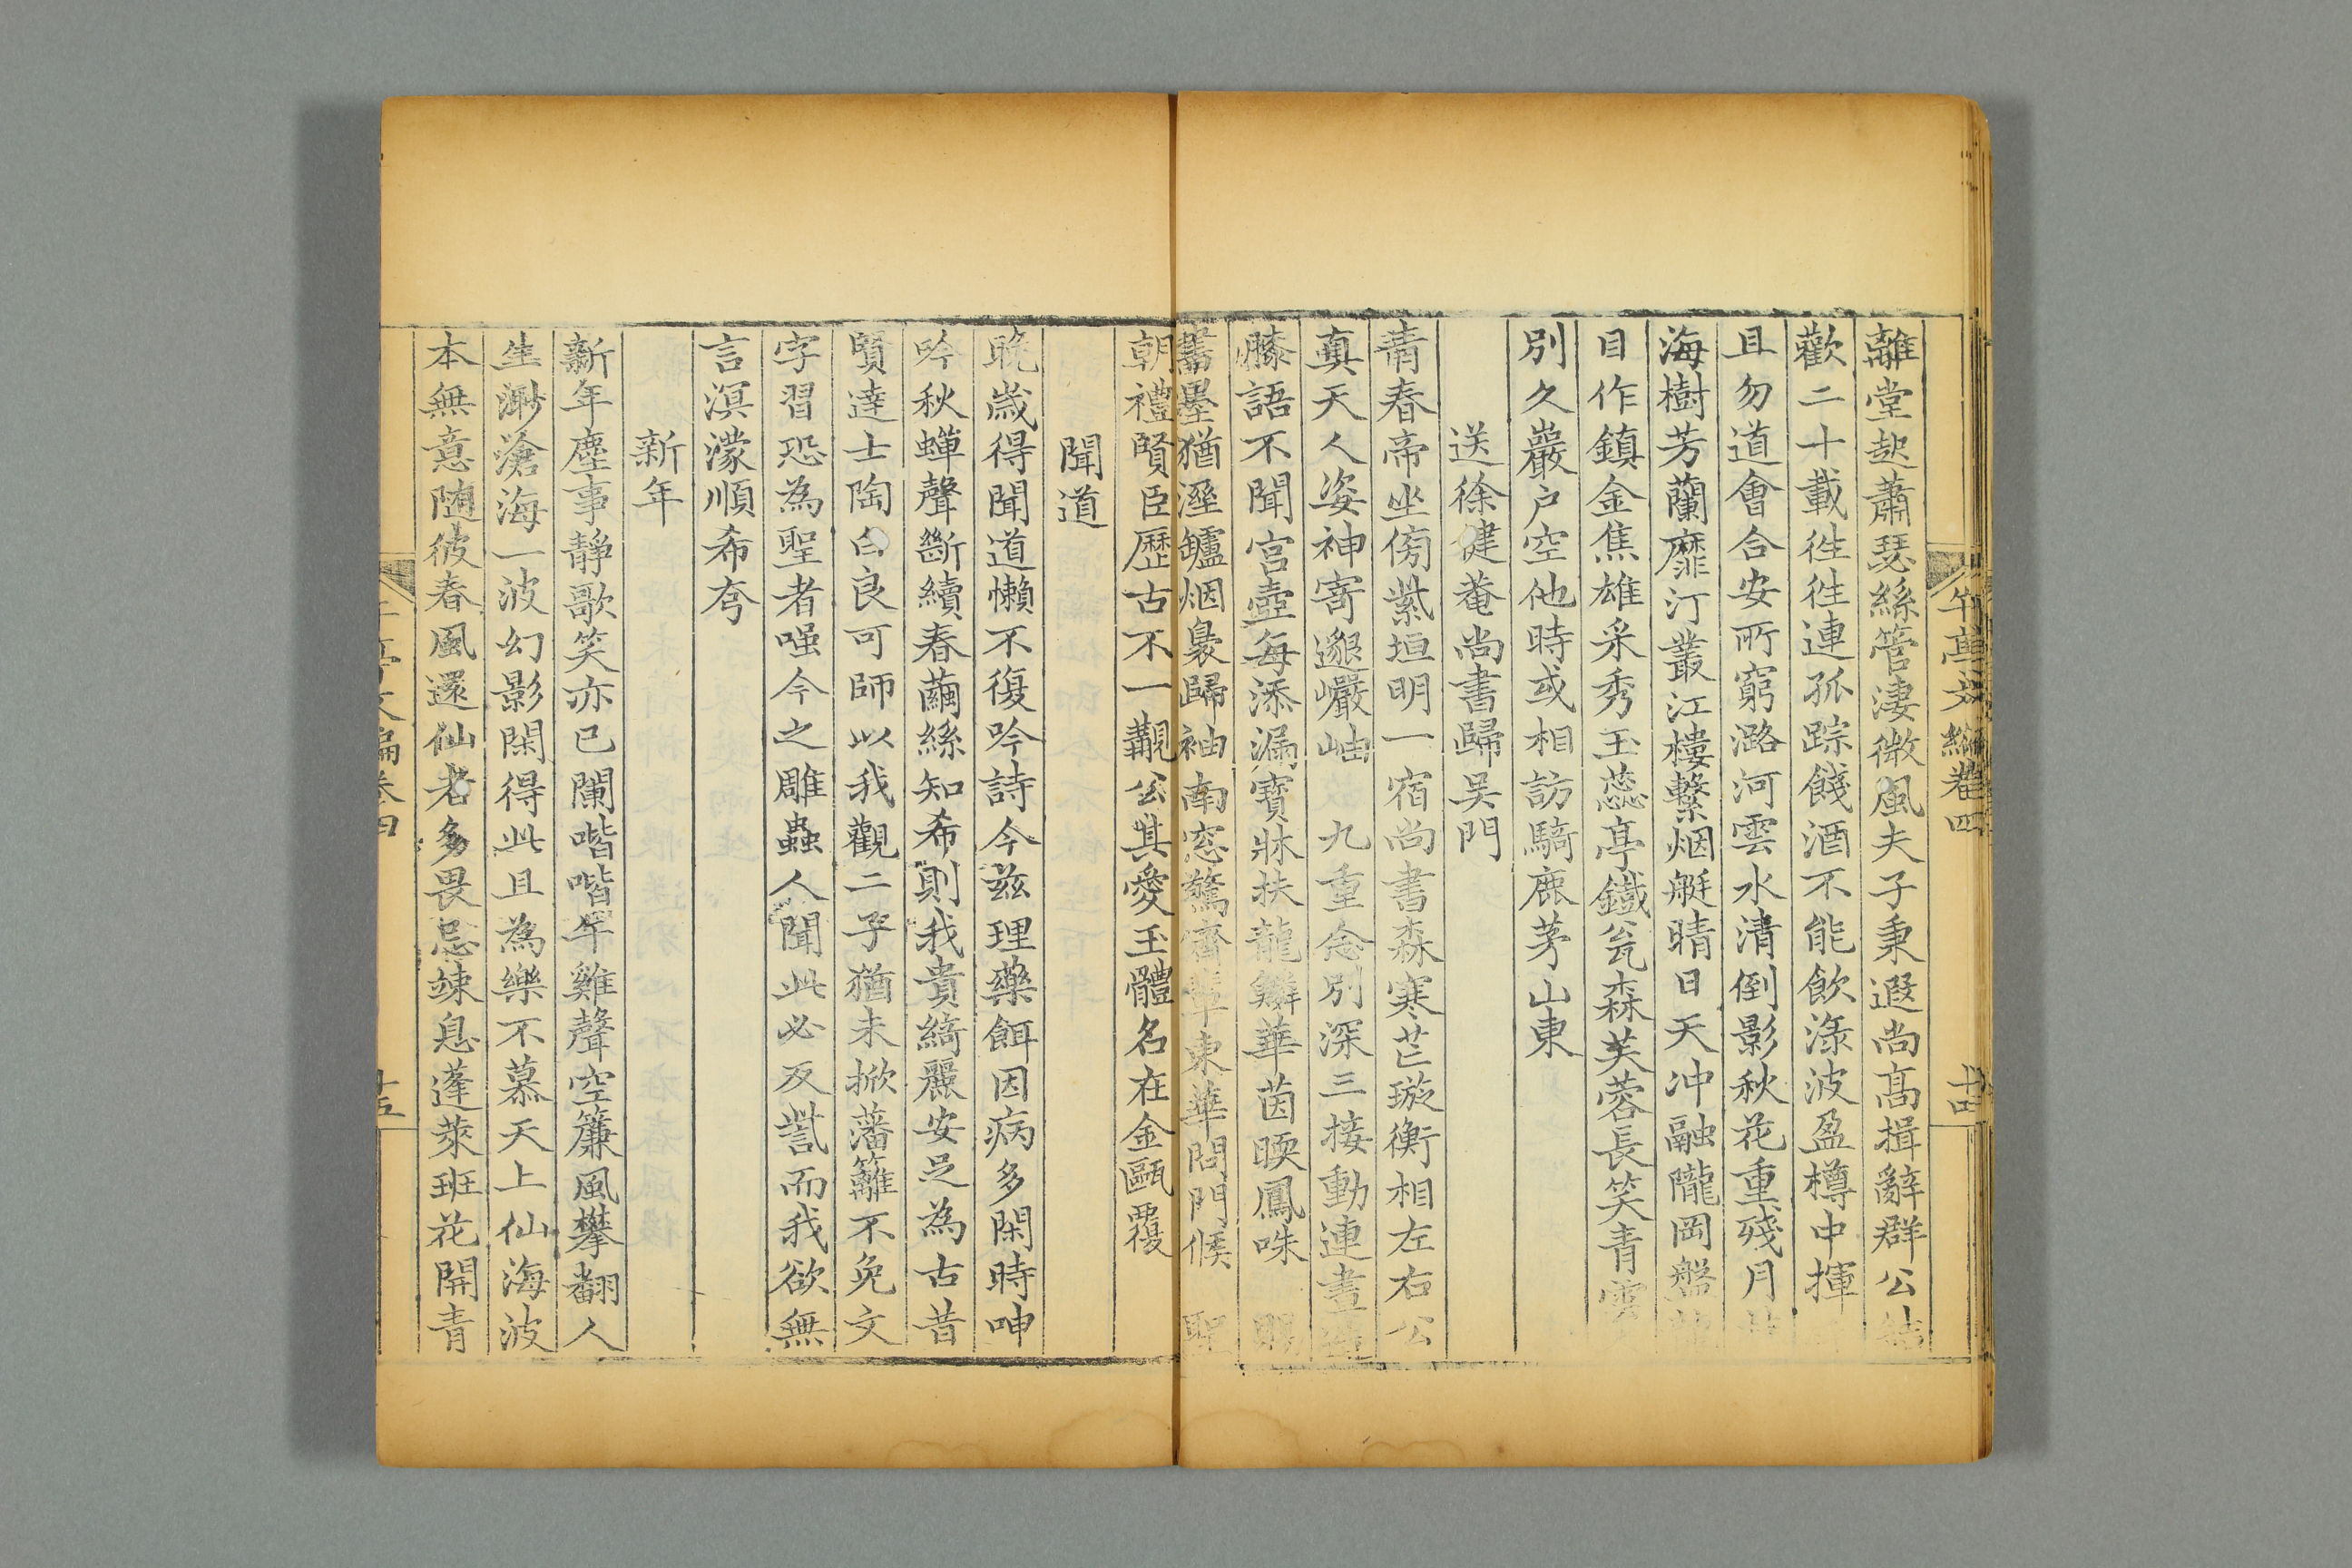 午亭文編卷四
十四
離堂起蕭瑟絲管淒微風夫子秉遐尚高揖辭群公結
歡二十載徃徃連孤踪餞酒不能飲淥波盈樽中揮
且勿道會合安所窮潞河雲水清倒影秋花重殘月
海樹芳蘭靡汀叢江樓繫烟艇晴日天沖融隴岡盤
目作鎮金焦雄采秀玉蕊亭鐵瓮森芙蓉長笑青雲
別久巖户空他時或相訪騎鹿茅山東
送徐健菴尚書歸吳門
青春帝坐傍紫垣明一宿尚書森寒芒璇衡相左右公
真天人姿神寄邈巖岫 九重念別深三接動連晝
膝語不聞宮壺每添漏寶牀扶龍鱗華茵暎鳳咮
蓄墨猶溼鑪烟裊歸袖南窓驚儕輩東華問門候 聖
朝禮賢臣歷古不一覯公其愛玉體名在金甌覆
聞道
晚歲得聞道懶不復吟詩今兹理藥餌因病多閑時呻
吟秋蟬聲斷續春繭絲知希則我貴綺麗安足為古昔
賢達士陶白良可師以我觀二子猶未掀藩籬不免文
字習恐為聖者嗤今之雕蟲人聞此必反訾而我欲無
言溟濛順希夸
新年
新年塵事靜歌笑亦已闌喈喈午雞聲空簾風攀翻人
生渺滄海一波幻影閑得此且為樂不慕天上仙海波
本無意随彼春風還仙者多畏忌竦息蓬萊班花開青
午亭文編卷四
十五